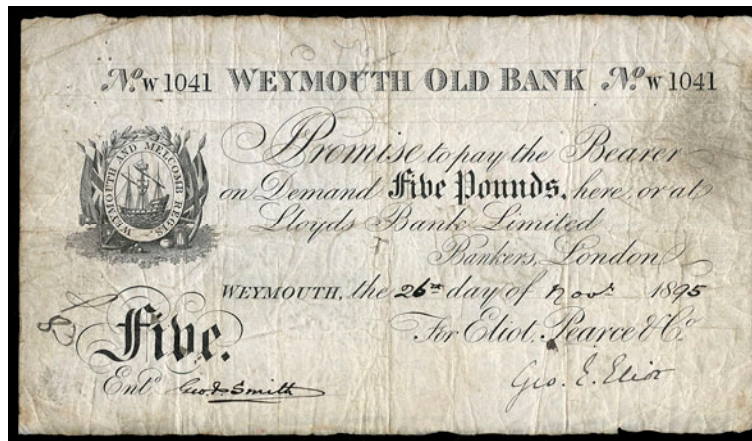 No. W 1041 WEYMOUTH OLD BANK No. W 1041
WEYMOUTH AND MELCOMB REGIS
I Promise to pay the Bearer
on Demand Five Pounds, here, or at
Lloyds Bank Limited
Bankers, London
WEYMOUTH, the 26th day of Novr. 1895
For Eliot, Pearce & Co.
Five.
Entd. Geo. J. Smith
Geo. E. Eliot